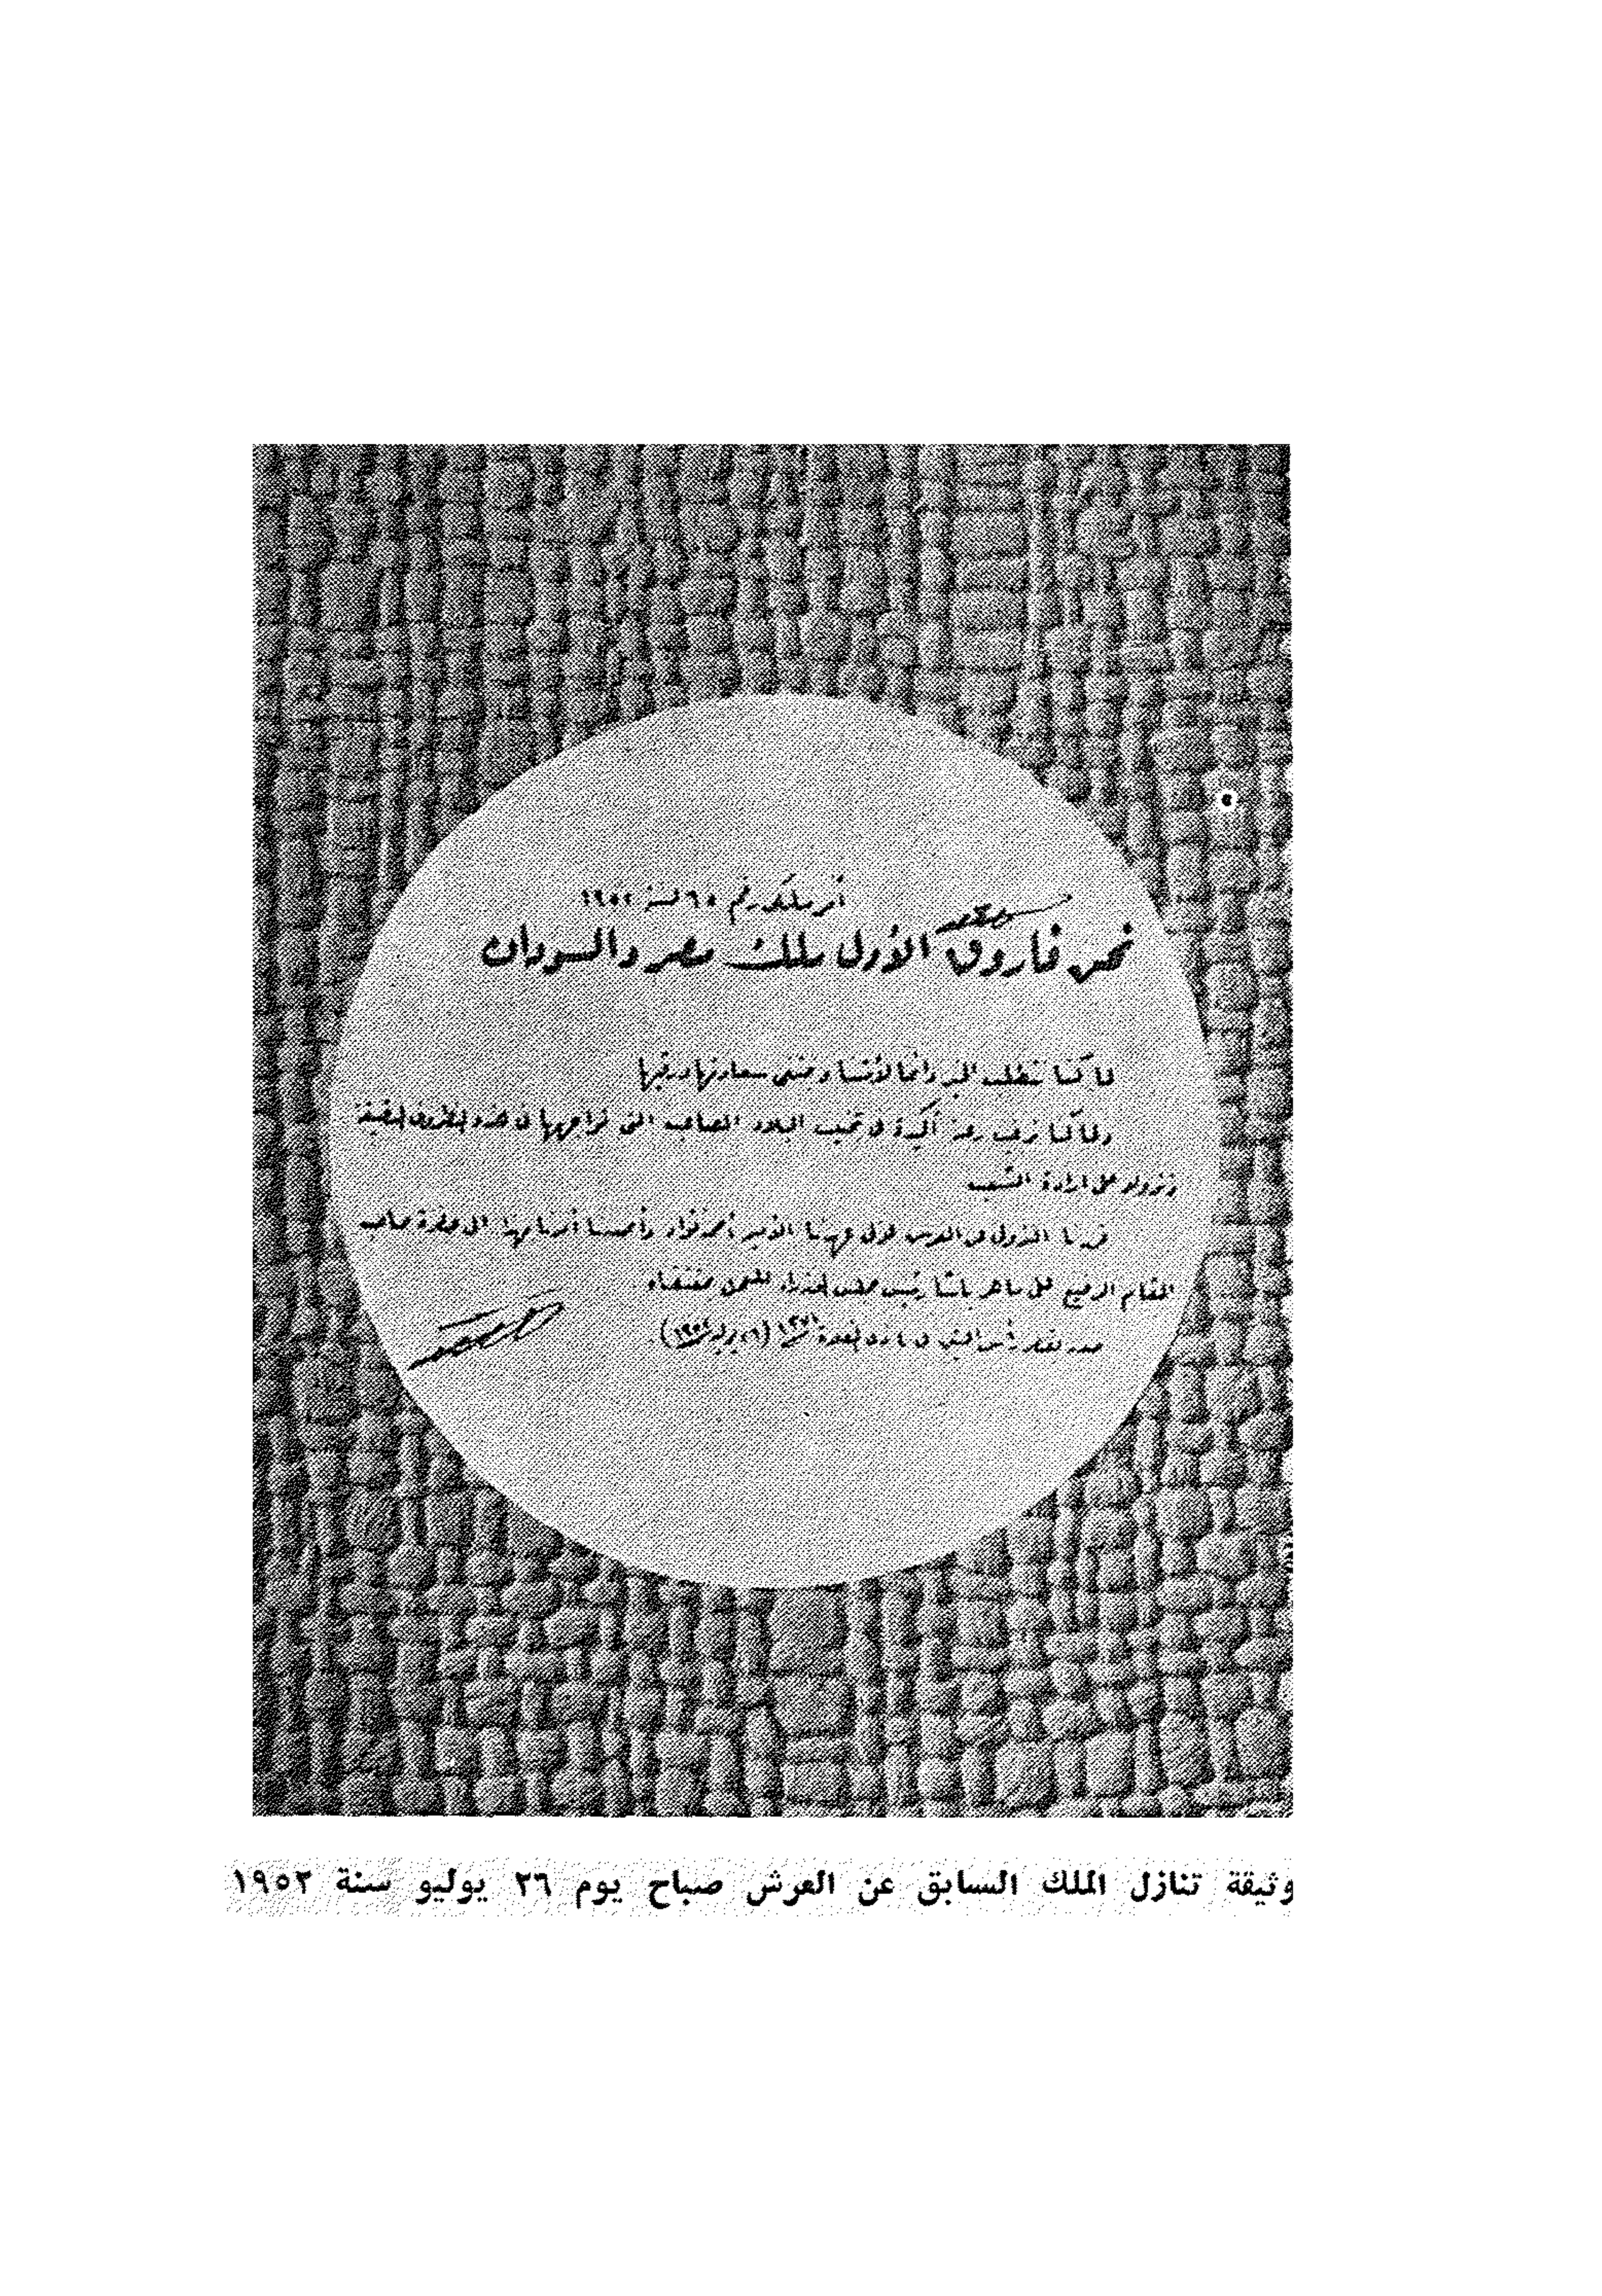 أمر ملكى رقم ٦٥ لسنة ١٩٥٢
نحن فاروق الأول ملك مصر والسودان
لما كنا نتطلب الخير دائما لأمتنا ونبتغى سعادتها ورقيها
ولما كنا نرغب رغبة أكيدة فى تجنيب البلاد المصاعب التى تواجهها فى هذه الظروف الدقيقة
ونزولا على ارادة الشعب
قررنا النزول عن العرش لولى عهدنا الأمير أحمد فؤاد وأصدرنا أمرنا بهذا الى حضرة صاحب
المقام الرفيع على ماهر باشا رئيس مجلس الوزراء للعمل بمقتضاه
صدر بقصر رأس التين فى ٤ ذى القعدة ١٣٧١ (٢٦ يوليه ١٩٥٢).
وثيقة تنازل الملك السابق عن العرش صباح يوم ٢٦ يوليو سنة ١٩٥٢